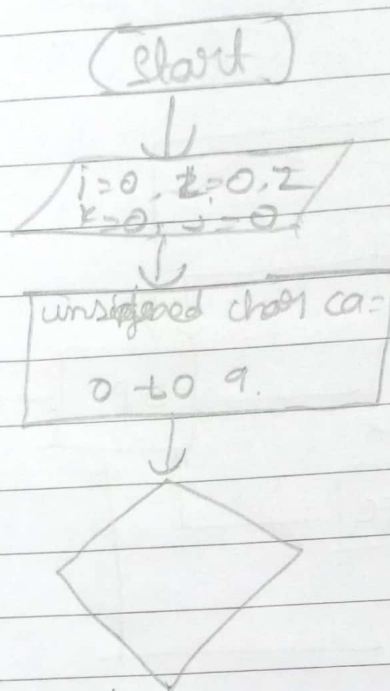 Start
i=0, z=0.2
k=0, j=0
unsigned char ca=
0 to 9.